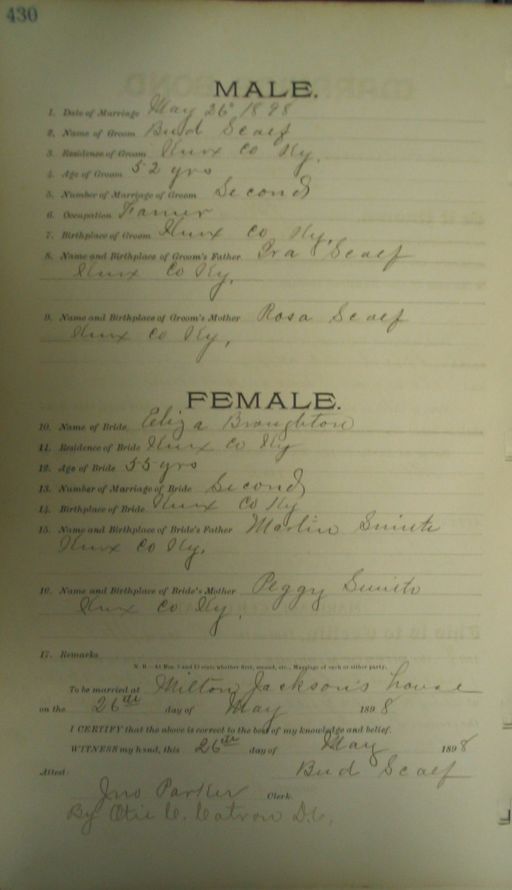 430
MALE.
1. Date of Marriage May 26" 1898
2. Name of Groom Bud Scalf
3. Residence of Groom Knox Co Ky.
4. Age of Groom 52 yrs
5. Number of Marriage of Groom Second
6. Occupation Farmer
7. Birthplace of Groom Knox Co Ky.
8. Name and Birthplace of Groom's Father Ira Scalf
Knox Co Ky.
9. Name and Birthplace of Groom's Mother Rosa Scalf
Knox Co Ky.
FEMALE.
10. Name of Bride Eliza Broughton
11. Residence of Bride Knox Co Ky
12. Age of Bride 55 yrs
13. Number of Marriage of Bride Second
14. Birthplace of Bride Knox Co Ky
15. Name and Birthplace of Bride's Father Martin
Knox Co Ky.
16. Name and Birthplace of Bride's Mother Peggy
Knox Co Ky.
17. Remarks
N. B.—At Nos. 5 and 13 state whether first, second, etc., Marriage of each or either party.
To be married at Milton Jackson's house
on the 26th day of May 1898
I CERTIFY that the above is correct to the best of my knowledge and belief.
WITNESS my hand, this 26th day of May 1898
Bud Scalf
Attest:
Jno Parker Clerk
By Otis C. Catron D.C.